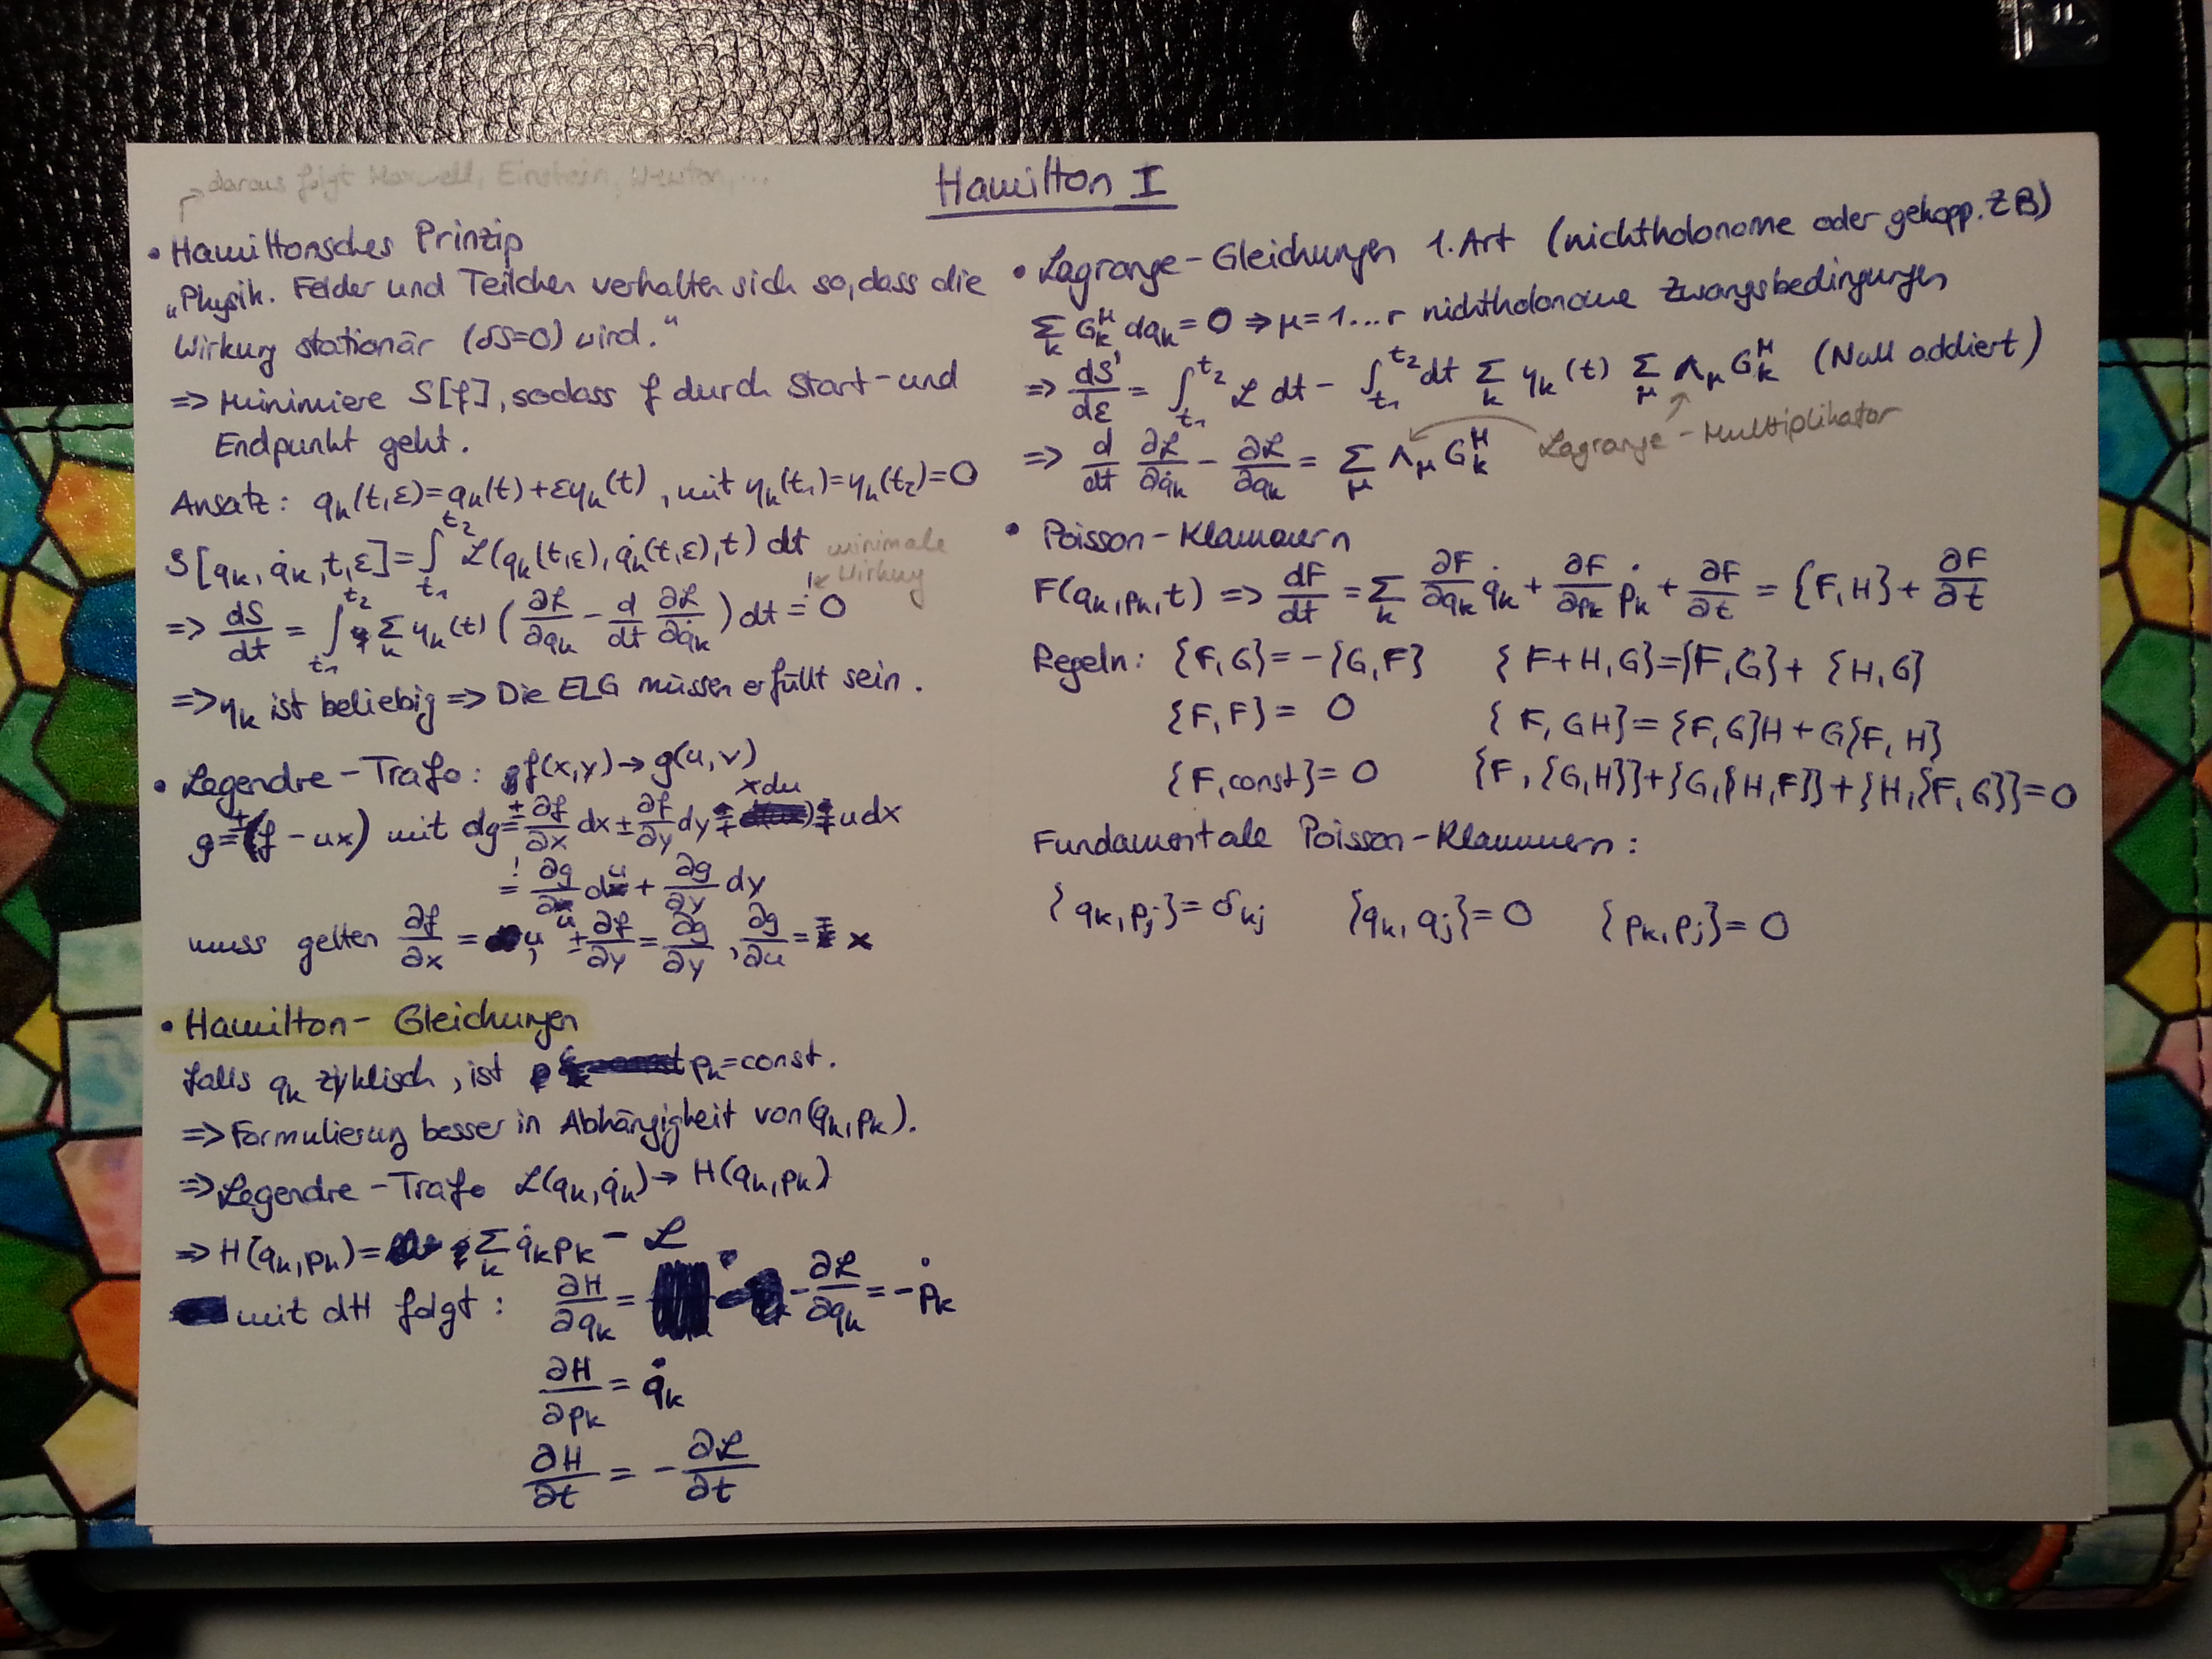 Hamilton I
daraus folgt Maxwell, Einstein, Newton, ...
• Hamiltonsches Prinzip
„Physik. Felder und Teilchen verhalten sich so, dass die
Wirkung stationär (δS=0) wird."
=> Minimiere S[f], sodass f durch Start- und
Endpunkt geht.
Ansatz: qₖ(t,ε)=qₖ(t)+εηₖ(t), mit ηₖ(t₁)=ηₖ(t₂)=0
S[qₖ, q̇ₖ, t, ε] = ∫_{t₁}^{t₂} ℒ(qₖ(t,ε), q̇ₖ(t,ε), t) dt
minimale
Wirkung
=> dS/dt = ∫_{t₁}^{t₂} Σₖ ηₖ(t) (∂ℒ/∂qₖ - d/dt ∂ℒ/∂q̇ₖ) dt =! 0
=> ηₖ ist beliebig => Die ELG müssen erfüllt sein.
• Legendre-Trafo: f(x,y) → g(u,v)
g = ±(f - ux) mit dg = ± ∂f/∂x dx ± ∂f/∂y dy ∓ xdu ∓ udx
=! ∂g/∂u du + ∂g/∂y dy
muss gelten ∂f/∂x = u, ± ∂f/∂y = ∂g/∂y, ∂g/∂u = ∓ x
• Hamilton-Gleichungen
falls qₖ zyklisch, ist pₖ=const.
=> Formulierung besser in Abhängigkeit von (qₖ, pₖ).
=> Legendre-Trafo ℒ(qₖ, q̇ₖ) → H(qₖ, pₖ)
=> H(qₖ, pₖ) = Σₖ q̇ₖpₖ - ℒ
mit dH folgt: ∂H/∂qₖ = - ∂ℒ/∂qₖ = - ṗₖ
∂H/∂pₖ = q̇ₖ
∂H/∂t = - ∂ℒ/∂t
• Lagrange-Gleichungen 1. Art (nichtholonome oder gekopp. ZB)
Σₖ Gₖ^μ dqₖ = 0 => μ = 1...r nichtholonome Zwangsbedingungen
=> dS'/dε = ∫_{t₁}^{t₂} ℒ dt - ∫_{t₁}^{t₂} dt Σₖ ηₖ(t) Σ_μ Λ_μ Gₖ^μ (Null addiert)
=> d/dt ∂ℒ/∂q̇ₖ - ∂ℒ/∂qₖ = Σ_μ Λ_μ Gₖ^μ
Lagrange-Multiplikator
• Poisson-Klammern
F(qₖ, pₖ, t) => dF/dt = Σₖ ∂F/∂qₖ q̇ₖ + ∂F/∂pₖ ṗₖ + ∂F/∂t = {F,H} + ∂F/∂t
Regeln: {F,G} = -{G,F} {F+H,G} = {F,G} + {H,G}
{F,F} = 0 {F,GH} = {F,G}H + G{F,H}
{F,const} = 0 {F,{G,H}} + {G,{H,F}} + {H,{F,G}} = 0
Fundamentale Poisson-Klammern:
{qₖ, pⱼ} = δₖⱼ {qₖ, qⱼ} = 0 {pₖ, pⱼ} = 0